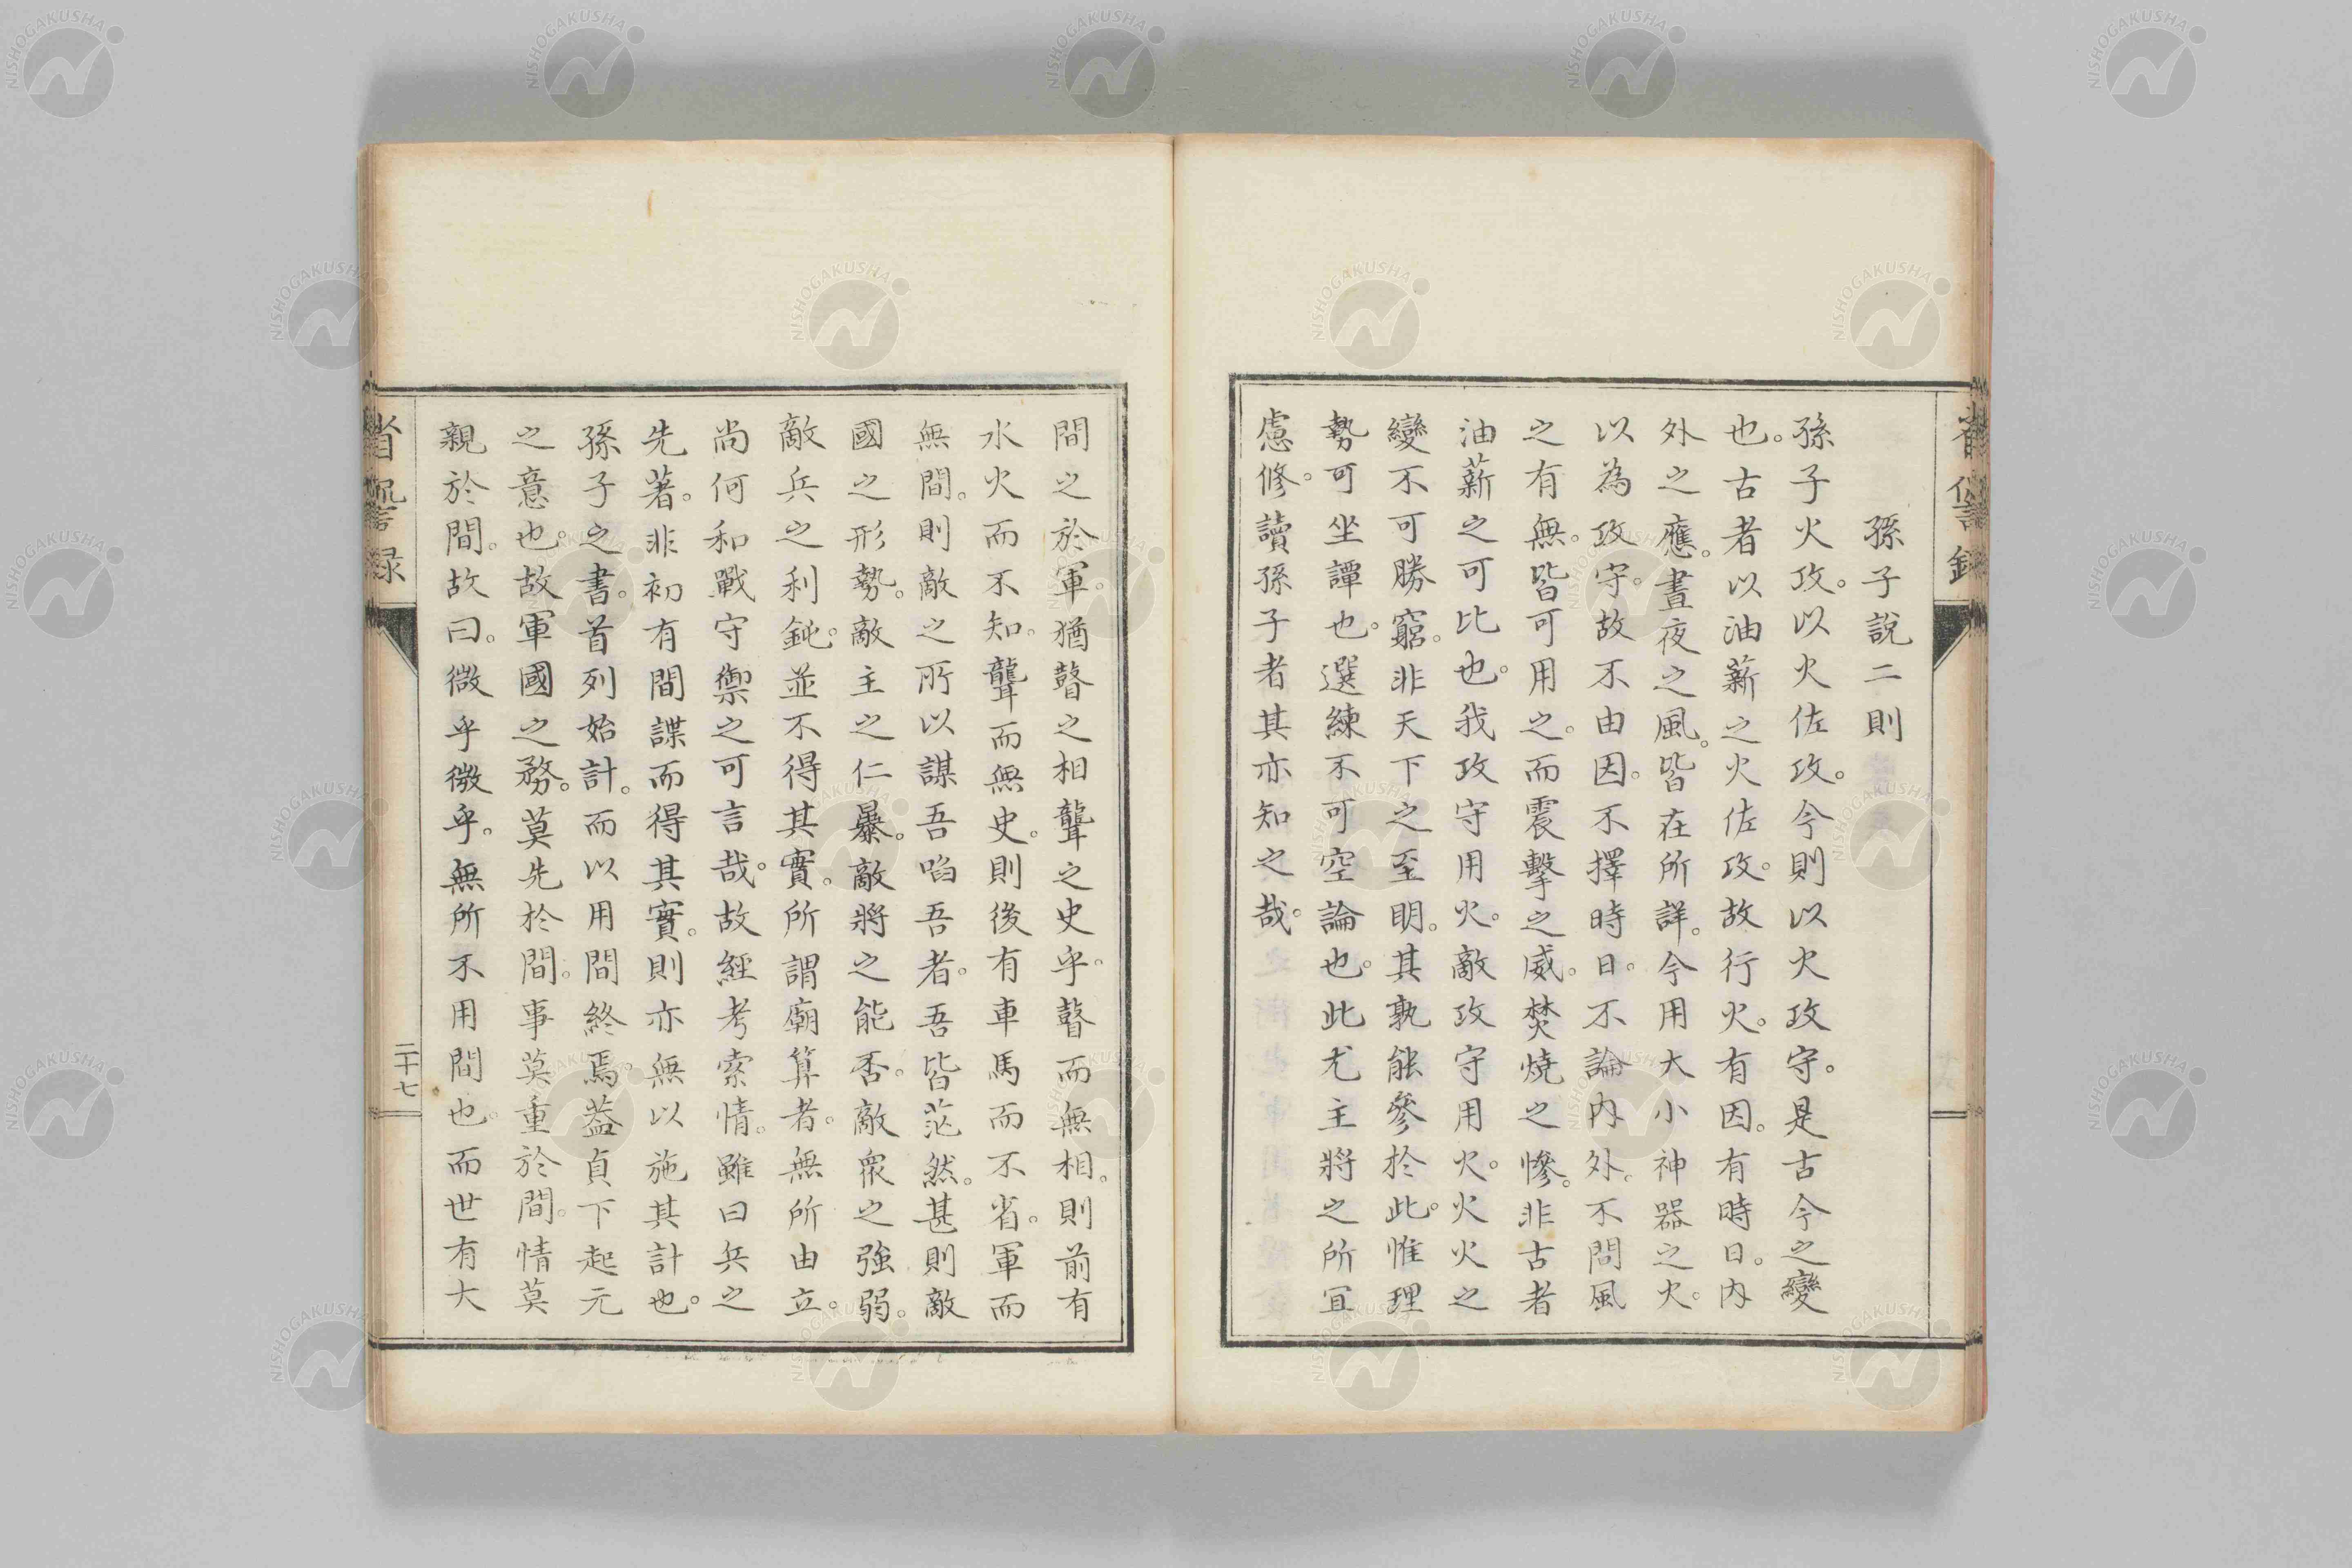 孫子說二則
孫子火攻。以火佐攻。今則以火攻守。是古今之變
也。古者以油薪之火佐攻。故行火。有因。有時日。内
外之應。晝夜之風。皆在所詳。今用大小神器之火。
以為攻守。故不由因。不擇時日。不論内外。不問風
之有無。皆可用之。而震擊之威。焚燒之慘。非古者
油薪之可比也。我攻守用火。敵攻守用火。火火之
變不可勝窮。非天下之至明。其孰能參於此。惟理
勢可坐譚也。選練不可空論也。此尤主將之所宜
慮修。讀孫子者其亦知之哉。
間之於軍。猶瞽之相聾之史乎。瞽而無相。則前有
水火而不知。聾而無史。則後有車馬而不省。軍而
無間。則敵之所以謀吾啗吾者。吾皆茫然。甚則敵
國之形勢。敵主之仁暴。敵將之能否。敵衆之強弱。
敵兵之利鈍。並不得其實。所謂廟算者。無所由立。
尚何和戰守禦之可言哉。故經考索情。雖曰兵之
先著。非初有間諜而得其實。則亦無以施其計也。
孫子之書。首列始計。而以用間終焉。葢貞下起元
之意也。故軍國之務。莫先於間。事莫重於間。情莫
親於間。故曰。微乎微乎。無所不用間也。而世有大
省諐録
二十七